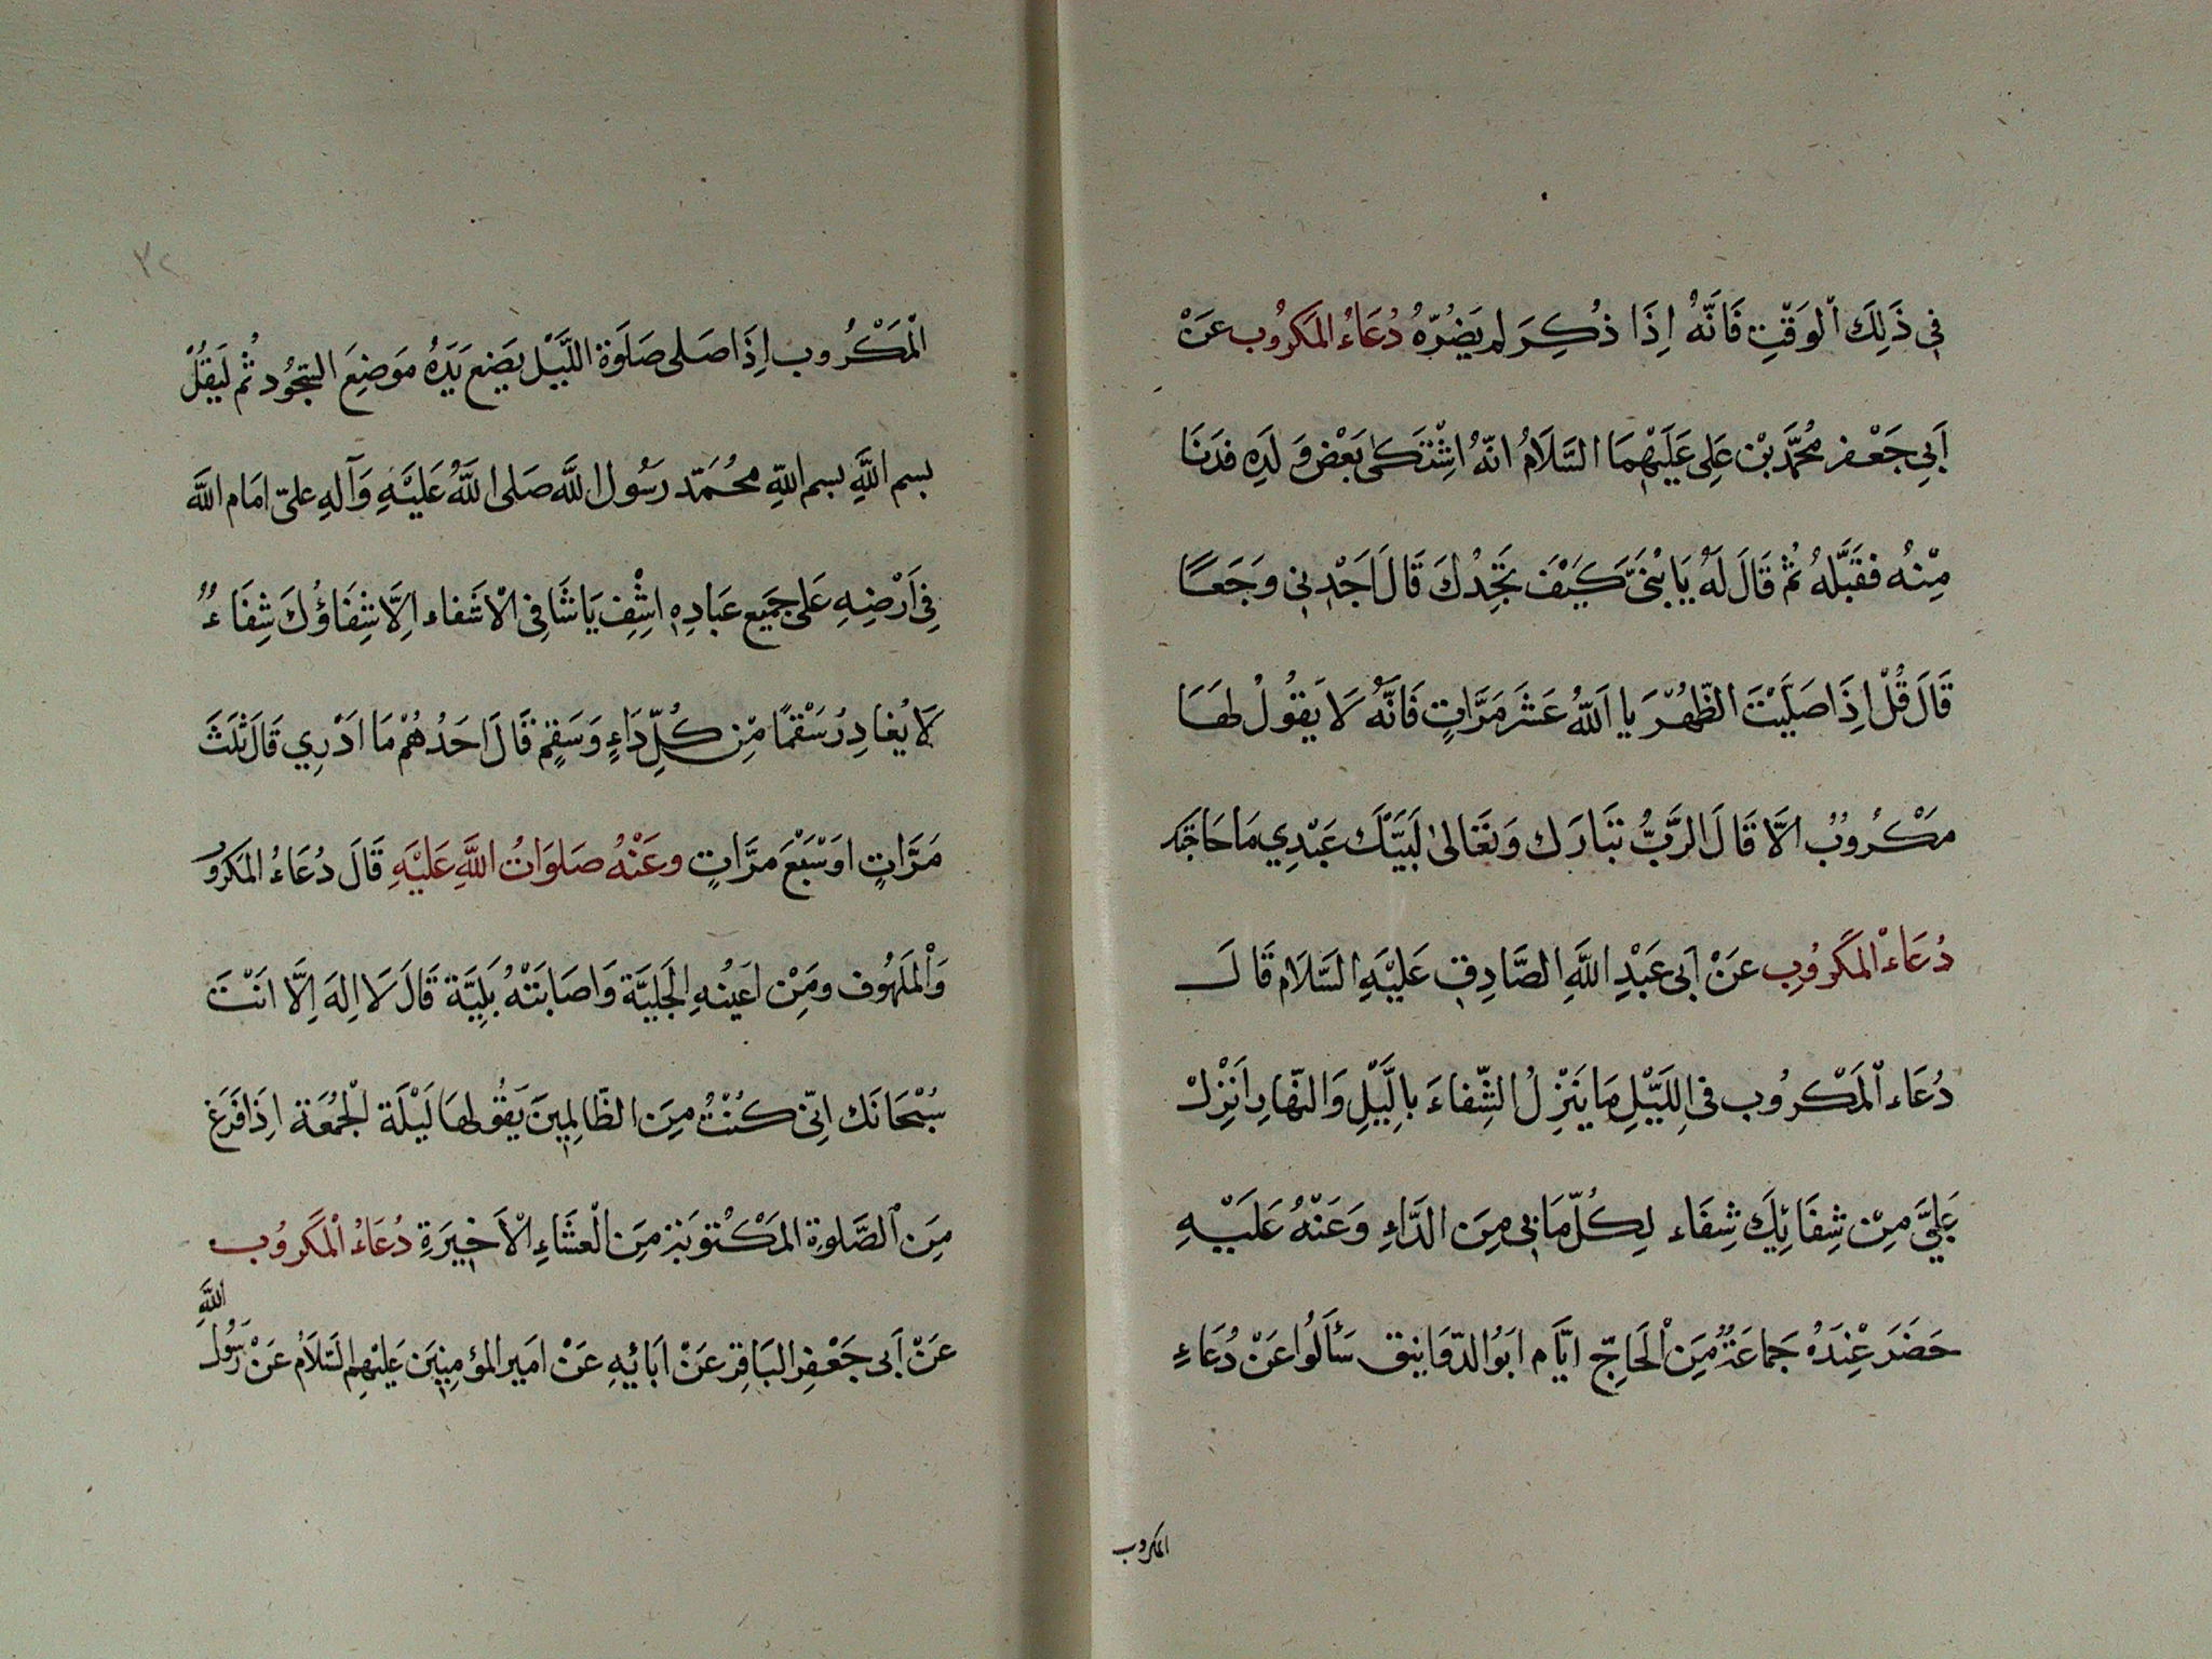 في ذَلِكَ الْوَقْتِ فَانَّهُ اِذَا ذُكِرَ لم يَضُرّهُ دُعَاءُ المَكرُوب عَنْ
اَبِي جَعْفر مُحَمَّد بْن عَلِى عَلَيْهِمَا السَّلَامُ انّهُ اشْتَكىٰ بَعْض وَلَدِهِ فَدَنَا
مِنْهُ فقَبَّلهُ ثُمّ قَالَ لَهُ يَا بُنَىَّ كَيْفَ تَجِدُكَ قَالَ اَجْدِنِي وَجَعًا
قَالَ قُلْ اِذَا صَلَيْتَ الظُّهْرَ يا اَللّهُ عَشَر مَرَّاتٍ فَانَّهُ لَا يَقُولُهَا
مَكْرُوبٌ الّا قَالَ الرَّبُّ تبَارَك وَتَعَالىٰ لَبَيَّك عَبْدِي مَا حَاجَتك
دُعَاءْ المَكروُبِ عَنْ اَبى عَبْدِ اللَّهِ الصَّادِقِ عَليْهِ السَّلَام قَالَ
دُعَاء الْمَكْرُوب فى اللَيّلِ مَا يَنْزِلُ الشِّفاءَ بالِلَّيْلِ وَالنّهَارِ اَنْزِلْ
عَلَيَّ مِنْ شِفَائِكَ شِفَاء لِكُلّ مَا بِي مِنَ الدَّاءِ وَعَنْهُ عَلَيْهِ
حَضَرَ عْنِدَهُ جَماعَةٌ مِّنَ الْحَاجّ ايَّام ابَوُ الدّوَانيق سَأَلُوا عَنْ دُعَاءِ
المكروب
۳۲
الْمَكْرُوب اِذَا صَلى صَلَوة اللَّيَّل يَضَع يَدَهُ مَوضِعَ السّجُود ثُم لَيقُلْ
بسم اللَّهِ بسم اللّهِ محُمَّد رَسُول اللَّه صَلى اللَّهُ عَلَيْهِ وَآلهِ علىّ امَام اللَّه
فِي اَرْضِهِ عَلى جَمِيَع عِبَادِهِ اشْفِ يَا شَافِى الْاشَفاء اِلَّا شِفَاؤُكَ شِفَاءٌ
لَا يُغادِرُ سَقْمًا مّنِ كُلِّ دَاءٍ وَسَقٍم قَالَ اَحَدُهُمْ مَا ادْرِي قَالَ ثَلَثَ
مَرَّاتٍ اوَ سَبْعَ مرَّاتٍ وعَنْهُ صَلوَاتُ اللَّهِ عَلَيْهِ قَالَ دُعَاءُ المَكروُ
وَالْمَلَهُوف ومَنْ اعَيتهِ الحَلِيَّة وَاصَابَتْهُ بَلِيَّة قَالَ لَا اِلهَ اِلَّا اَنْتَ
سُبْحَانَك انّى كُنْتُ مِنَ الظَّالِمِينَ يَقُولهَا لَيْلَة الْجُمُعَة اِذَا فَرَغَ
مِنَ الصَّلوةِ المَكْتوبَة مِنَ الْعشَاءِ الْاَخيَرةِ دُعَاءُ الْمَكروُب
عَنْ اَبى جَعْفِر البَاقِر عَنْ ابَائهِ عَنْ امَير المؤمِنيَن عَليْهِم السَّلَامُ عَنْ رَسُول اللَّهِ